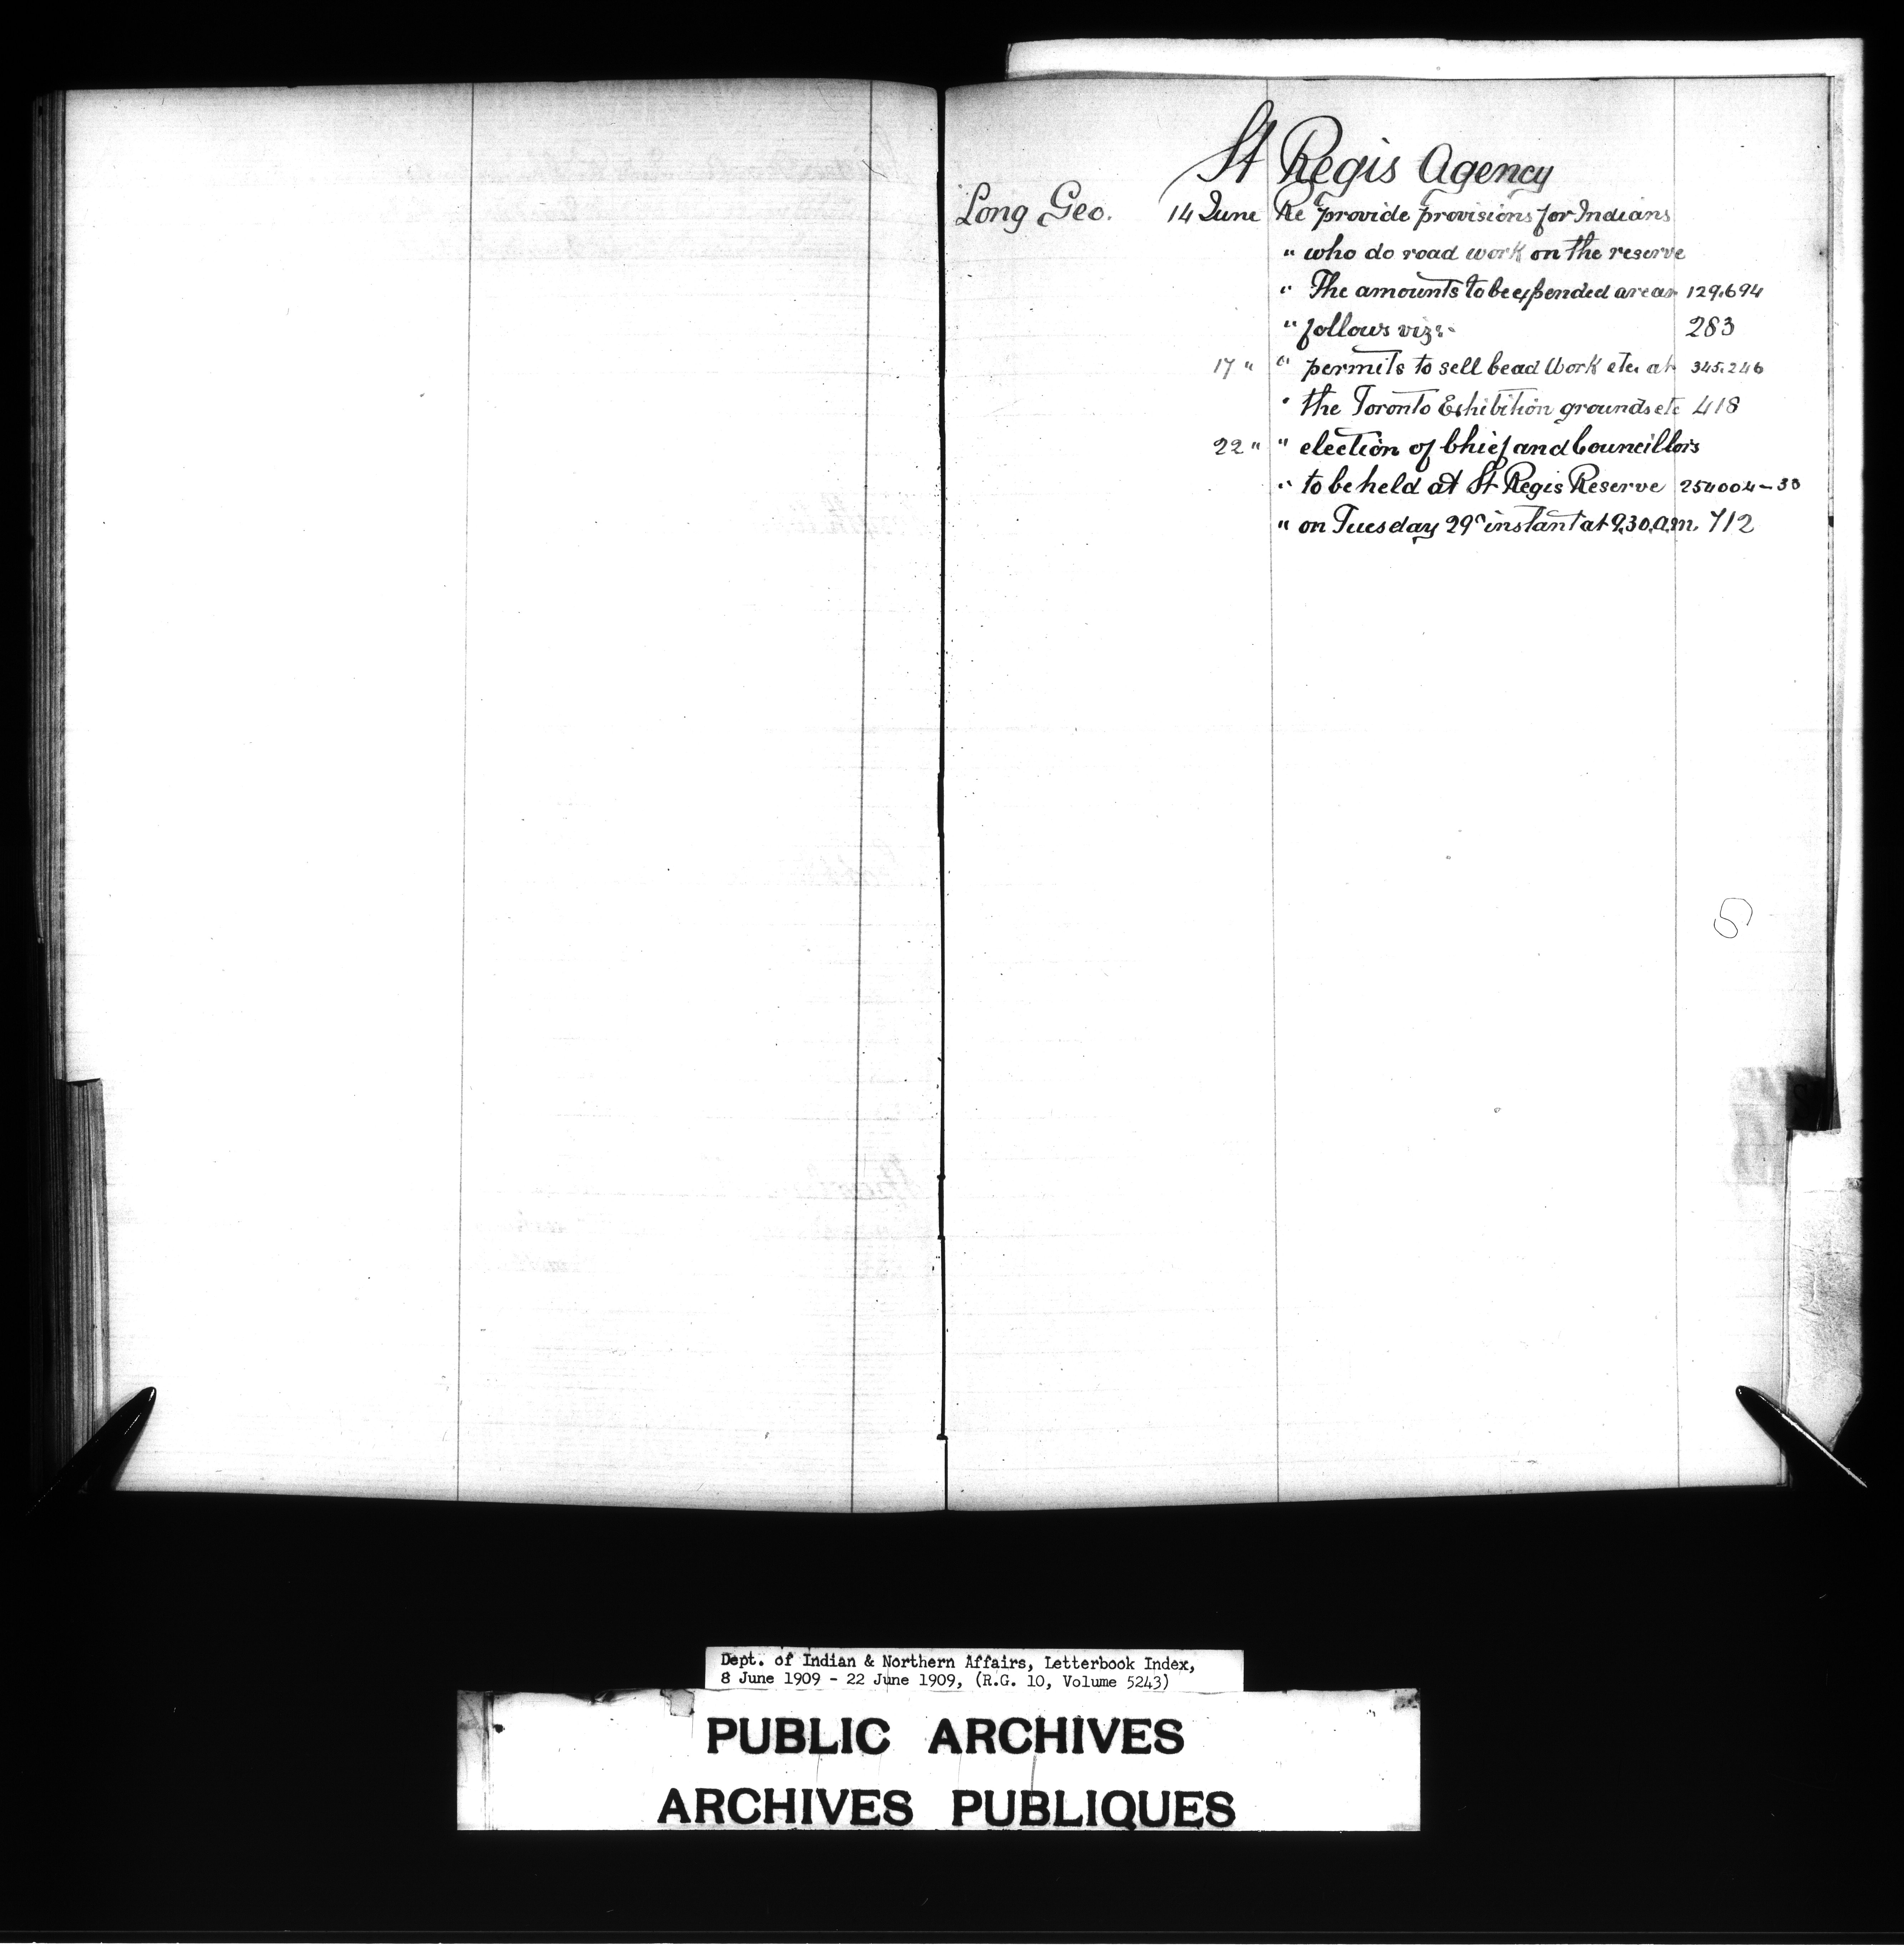 St Regis Agency
Long Geo. 14 June Re provide provisions for Indians
" who do road work on the reserve
" The amounts to be expended are as 129.694
" follows viz:- 283
17 " " permits to sell bead work etc. at 345.246
" the Toronto Exhibition grounds etc 418
22 " " election of Chief and Councillors
" to be held at St Regis Reserve 254004-33
" on Tuesday 29" instant at 9.30.a.m. 712
Dept. of Indian & Northern Affairs, Letterbook Index,
8 June 1909 - 22 June 1909, (R.G. 10, Volume 5243)
PUBLIC ARCHIVES
ARCHIVES PUBLIQUES